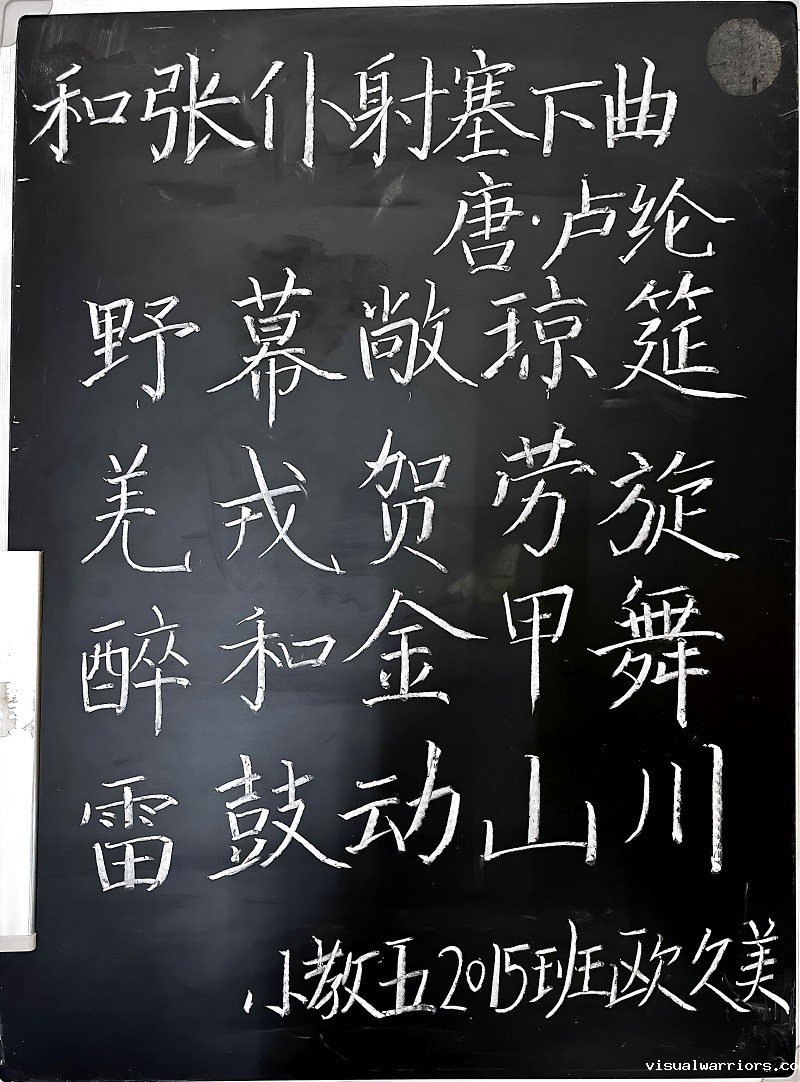 和张仆射塞下曲
唐·卢纶
野幕敞琼筵
羌戎贺劳旋
醉和金甲舞
雷鼓动山川
小教五2015班欧久美
visualwarriors.co